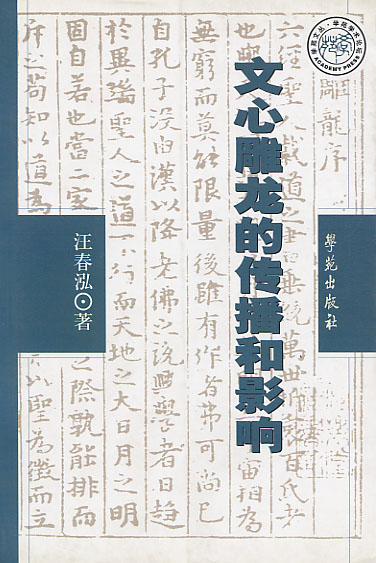 文心雕龙的传播和影响
汪春泓⊙著
學苑出版社
ACADEMY PRESS
雕龍序
六經聖人載道之書 統萬世 百氏
也 宙相為
無窮而莫能限量後雖有作者弗可尚已
自孔子沒由漢以降老佛之說興學者日趨
於異端聖人之道不行而天地之大日月之明
固自若也當二家 之際孰能排而
斥之苟知以道為 以聖為徵而立